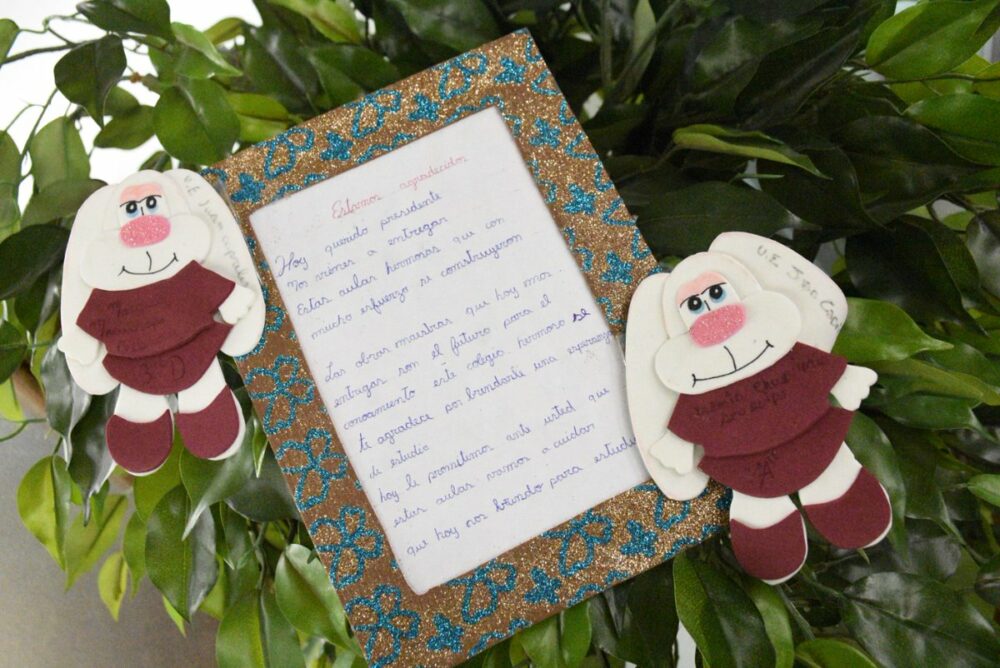 Estamos agradecidos
Hoy querido presidente
Nos vienes a entregar
Estas aulas hermosas que con
mucho esfuerzo se construyeron
Las obras maestras que hoy nos
entregas son el futuro para el
conocimiento este colegio hermoso se
te agradece por brindarte una esperanza
de estudio
hoy le prometimos ante usted que
estas aulas vamos a cuidar
que hoy nos brindo para estudi
U.E Juan
3 "D"
U.E Juan
"A"